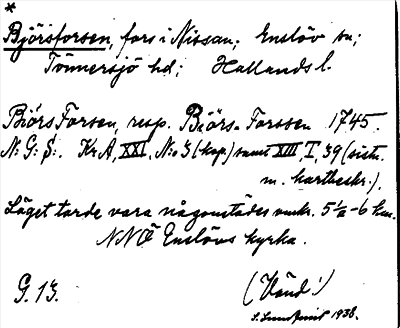 *
Björsforsen, fors i Nissan; Enslöv sn;
Tönnersjö hd; Hallands l.
Biörs Forsen, resp. Biörs-Forssen 1745.
N:G:S:. Kr. A, XXI, N:o 3 (kop.) samt XIII, I, 39 (
m. kartbeskr.).
Läget torde vara någonstädes omkr. 5½-6 km.
NNÖ Enslövs kyrka.
G. 13. (Vänd!)
1938.